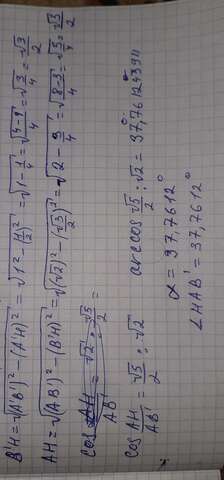 B'H=√(A'B')²-(A'H)² = √1²-(1/2)² = √1-1/4 = √(4-1)/4 = √3/4 = √3/2
AH=√(AB')²-(B'H)² = √(√2)²-(√3/2)² = √2-3/4 = √(8-3)/4 = √5/4 = √5/2
cos AH/AB' = √5/2 : √2
arccos √5/2 : √2 = 37,761243911°
α = 37,7612°
∠HAB' = 37,7612°